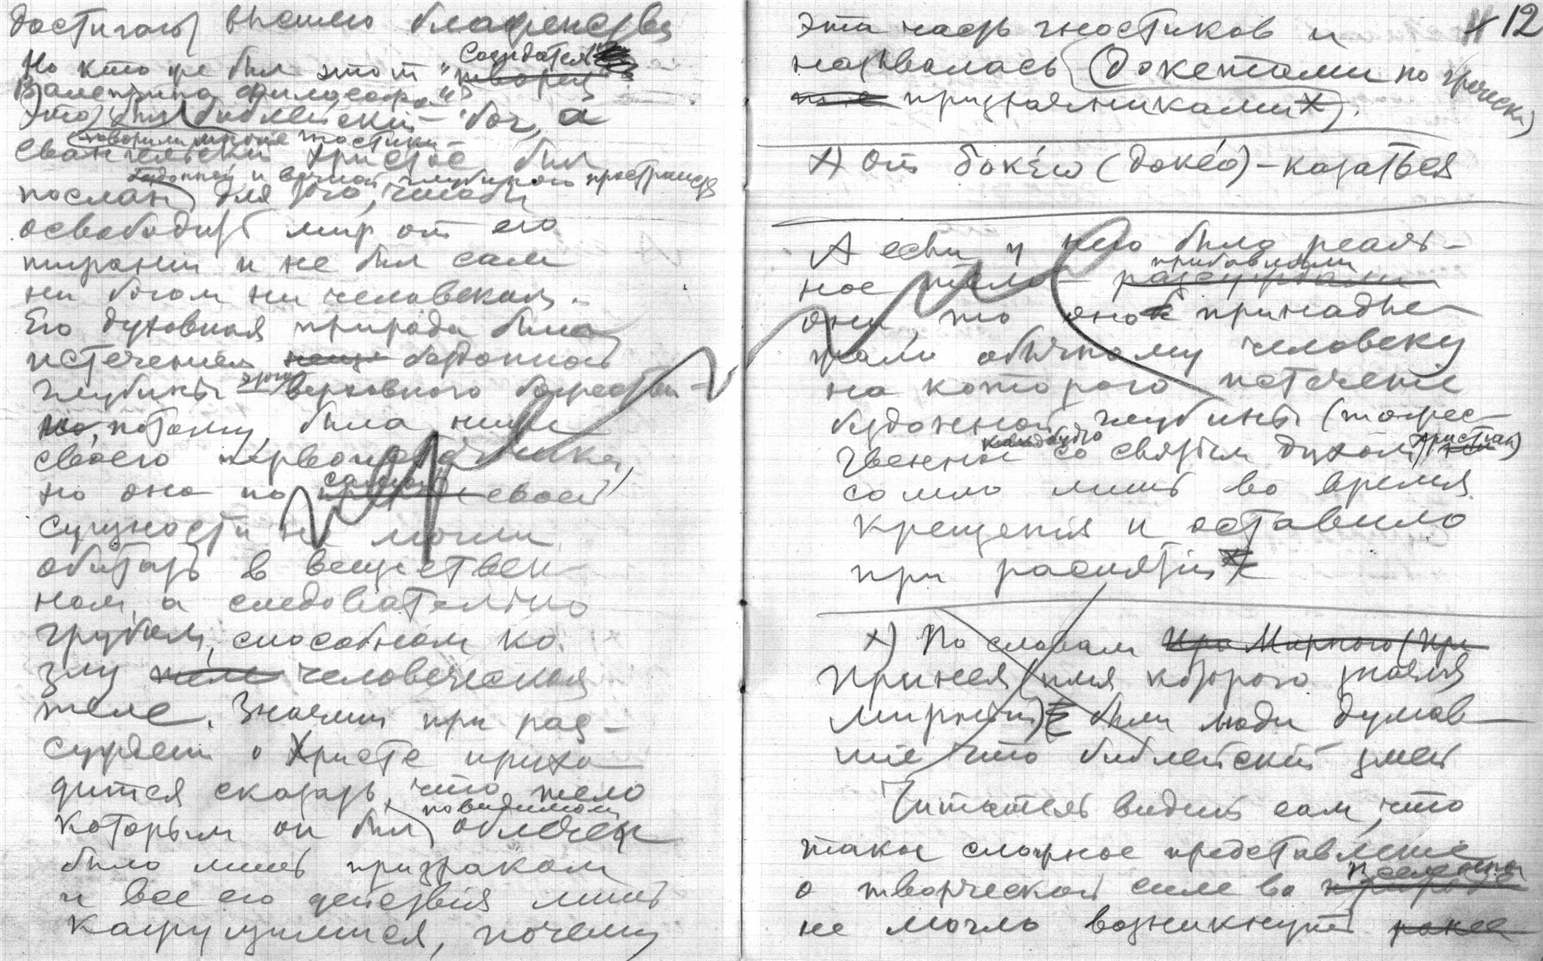 достигать высшего блаженства
Но кто же был этот "творец Создатель
Валентина философа"?
Это был библейский бог, а
(говорили многие гностики)
евангельский Христос был
бездонной и вечной глубиной пространства
послан для того, чтобы
освободить мир от его
тирании и не был сам
ни богом ни человеком.
Его духовная природа была
истечением бездонной
глубины этого верховного божества
но, потому, была ниже
своего первоисточника,
но она по самой своей
сущности не могла
обитать в веществен-
ном, а следовательно
грубом, способном ко
злу теле человеческом
теле. Значит при рас-
суждении о Христе прихо-
дится сказать, что тело
которым он был повидимому облечен
было лишь призраком
и все его действия лишь
кажущимися, почему
12
эта часть гностиков и
называлась (докетами по гречески
призрачниками x).
x) От δοκέω (докео) – казаться
А если у него было реаль-
ное тело прибавляли
они, то оно принадле-
жало обычному человеку
на которого истечение
бездонной глубины (тожест-
венной как будто со святым духом христиан)
сошло лишь во время
крещения и оставило
при распятии x
x) По словам
Принея (имя которого значит
мирный) были люди думав-
шие что библейский змей
Читатель видит сам, что
такое сложное представление
о творческой силе во вселенной
не могло возникнуть ранее